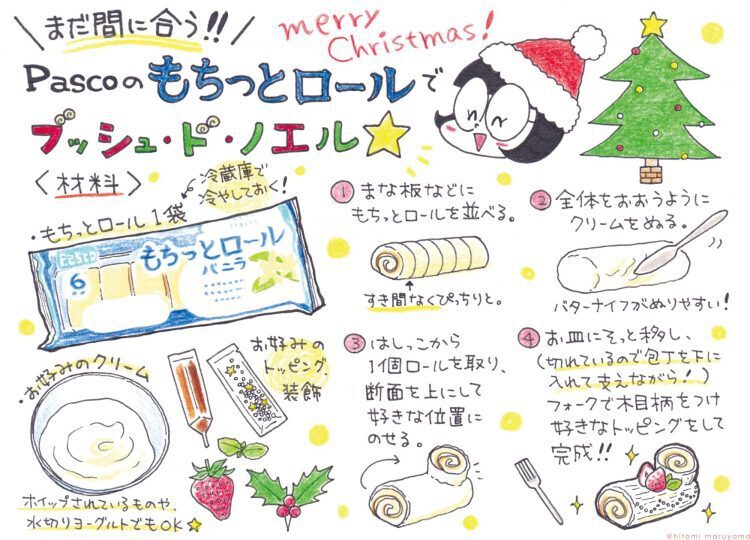 まだ間に合う!!
merry
Christmas!
Pascoの もちっとロールで
ブッシュ・ド・ノエル
〈材料〉
冷蔵庫で
冷やしておく!
・もちっとロール1袋
Pasco
もちっとロール
6
バニラ
・お好みのクリーム
ホイップされているものや、
水切りヨーグルトでもOK☆
お好みの
トッピング、
装飾
① まな板などに
もちっとロールを並べる。
すき間なくぴっちりと。
② 全体をおおうように
クリームをぬる。
バターナイフがぬりやすい!
③ はしっこから
1個ロールを取り、
断面を上にして
好きな位置に
のせる。
④ お皿にそっと移し、
(切れているので包丁を下に
入れて支えながら!)
フォークで木目柄をつけ
好きなトッピングをして
完成!!
@hitomi maruyama